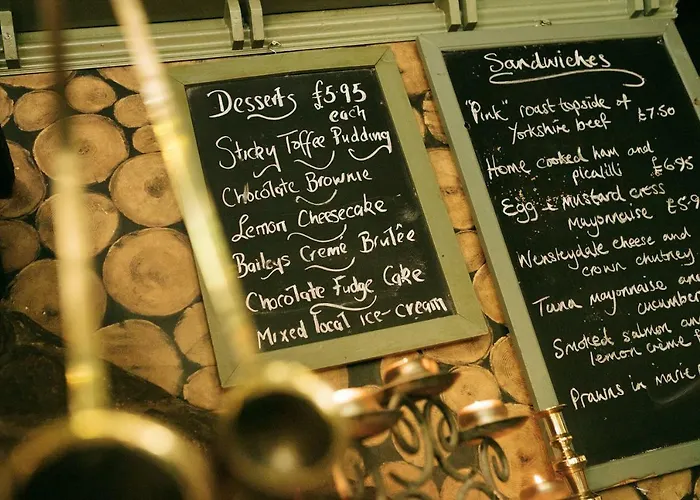 Desserts £5.95
each
Sticky Toffee Pudding
Chocolate Brownie
Lemon Cheesecake
Baileys Creme Brulêe
Chocolate Fudge Cake
Mixed local ice-cream
Sandwiches
"Pink" roast topside of
Yorkshire beef £7.50
Home cooked ham and
picalilli £6.95
Egg & mustard cress
mayonnaise £5.9
Wensleydale cheese and
crown chutney
Tuna mayonnaise and
cucumber
Smoked salmon and
lemon crème f
Prawns in marie